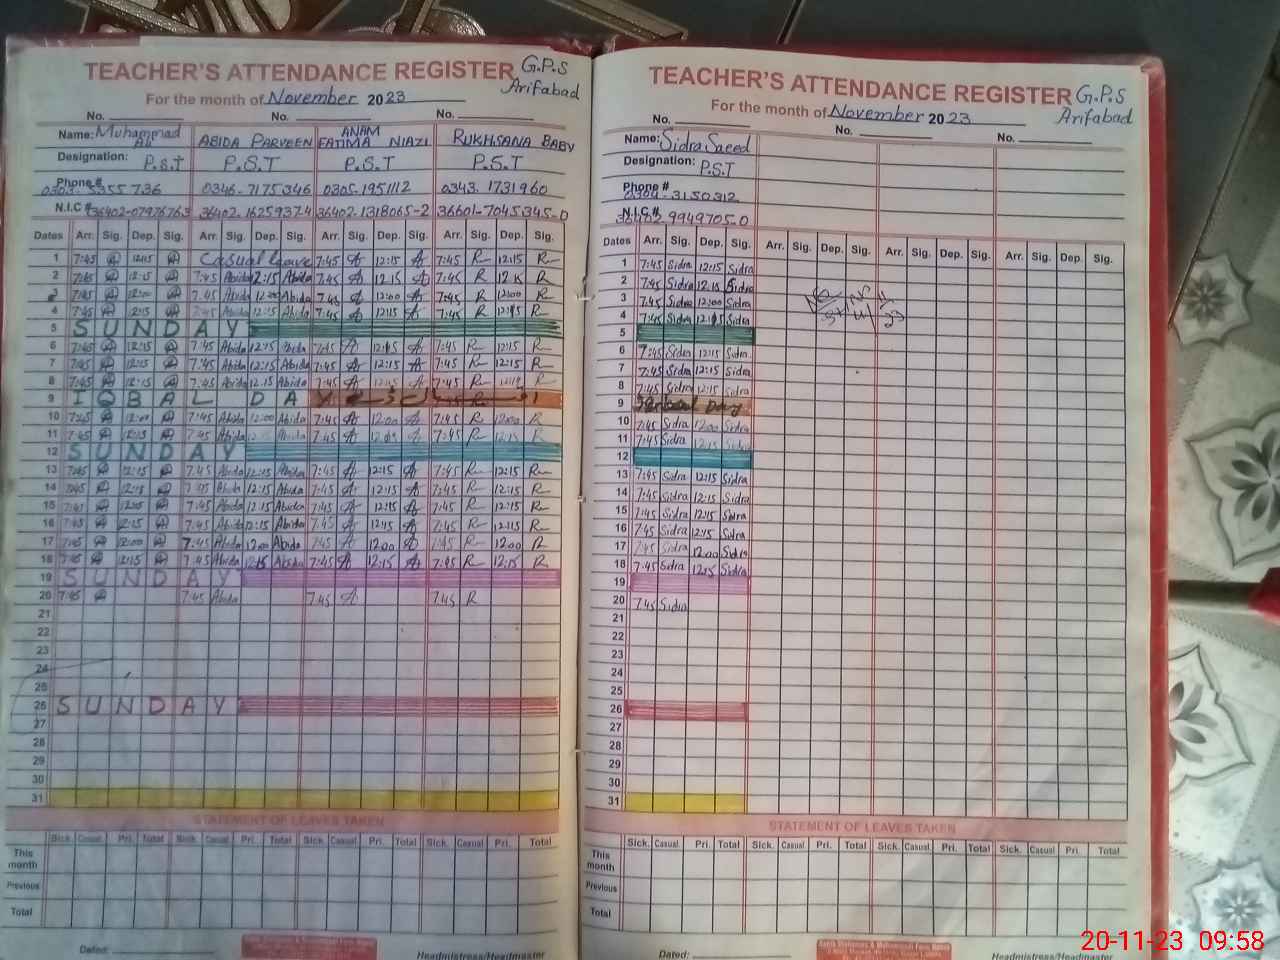 TEACHER'S ATTENDANCE REGISTER G.P.S
Arifabad
For the month of November 2023
No. No. No.
Name: Muhammad Ali ABIDA PARVEEN ANAM FATIMA NIAZI RUKHSANA BABY
Designation: P.S.T P.S.T P.S.T P.S.T
Phone # 0303-5355736 0346-7175346 0305-1951112 0343-1731960
N.I.C # 36402-07976763 36402-16259374 36402-1318065-2 36601-7045345-0
Dates Arr. Sig. Dep. Sig. Arr. Sig. Dep. Sig. Arr. Sig. Dep. Sig. Arr. Sig. Dep. Sig.
1 7:45 12:15 Casual leave 7:45 A 12:15 A 7:45 R 12:15 R
2 7:45 12:15 7:45 Abida 12:15 Abida 7:45 A 12:15 A 7:45 R 12:15 R
3 7:45 12:00 7:45 Abida 12:00 Abida 7:45 A 12:00 A 7:45 R 12:00 R
4 7:45 12:15 7:45 Abida 12:15 Abida 7:45 A 12:15 A 7:45 R 12:15 R
5 SUNDAY
6 7:45 12:15 7:45 Abida 12:15 Abida 7:45 A 12:15 A 7:45 R 12:15 R
7 7:45 12:15 7:45 Abida 12:15 Abida 7:45 A 12:15 A 7:45 R 12:15 R
8 7:45 12:15 7:45 Abida 12:15 Abida 7:45 A 12:15 A 7:45 R 12:15 R
9 IQBAL DAY
10 7:45 12:00 7:45 Abida 12:00 Abida 7:45 A 12:00 A 7:45 R 12:00 R
11 7:45 12:15 7:45 Abida 7:45 A 12:15 A 7:45 R 12:15 R
12 SUNDAY
13 7:45 12:15 7:45 Abida 12:15 Abida 7:45 A 12:15 A 7:45 R 12:15 R
14 7:45 12:15 7:45 Abida 12:15 Abida 7:45 A 12:15 A 7:45 R 12:15 R
15 7:45 7:45 Abida 12:15 Abida 7:45 A 12:15 A 7:45 R 12:15 R
16 7:45 12:15 7:45 Abida 12:15 Abida 7:45 A 12:15 A 7:45 R 12:15 R
17 7:45 12:00 7:45 Abida 12:00 Abida 7:45 A 12:00 A 7:45 R 12:00 R
18 7:45 12:15 7:45 Abida 12:15 Abida 7:45 A 12:15 A 7:45 R 12:15 R
19 SUNDAY
20 7:45 7:45 Abida 7:45 A 7:45 R
21
22
23
24
25
26 SUNDAY
27
28
29
30
31
STATEMENT OF LEAVES TAKEN
Sick. Casual. Pri. Total Sick. Casual. Pri. Total Sick. Casual. Pri. Total Sick. Casual. Pri. Total
This month
Previous
Total
Dated: Headmistress/Headmaster
TEACHER'S ATTENDANCE REGISTER G.P.S
Arifabad
For the month of November 2023
No. No. No.
Name: Sidra Saeed
Designation: P.S.T
Phone # 0304-3150312
N.I.C # 36402-9949705-0
Dates Arr. Sig. Dep. Sig. Arr. Sig. Dep. Sig. Arr. Sig. Dep. Sig. Arr. Sig. Dep. Sig.
1 7:45 Sidra 12:15 Sidra
2 7:45 Sidra 12:15 Sidra
3 7:45 Sidra 12:00 Sidra
4 7:45 Sidra 12:15 Sidra
5
6 7:45 Sidra 12:15 Sidra
7 7:45 Sidra 12:15 Sidra
8 7:45 Sidra 12:15 Sidra
9 Day
10 7:45 Sidra 12:00 Sidra
11 7:45 Sidra 12:15 Sidra
12
13 7:45 Sidra 12:15 Sidra
14 7:45 Sidra 12:15 Sidra
15 7:45 Sidra 12:15 Sidra
16 7:45 Sidra 12:15 Sidra
17 7:45 Sidra 12:00 Sidra
18 7:45 Sidra 12:15 Sidra
19
20 7:45 Sidra
21
22
23
24
25
26
27
28
29
30
31
STATEMENT OF LEAVES TAKEN
Sick. Casual. Pri. Total Sick. Casual. Pri. Total Sick. Casual. Pri. Total Sick. Casual. Pri. Total
This month
Previous
Total
Dated: Headmistress/Headmaster
20-11-23 09:58